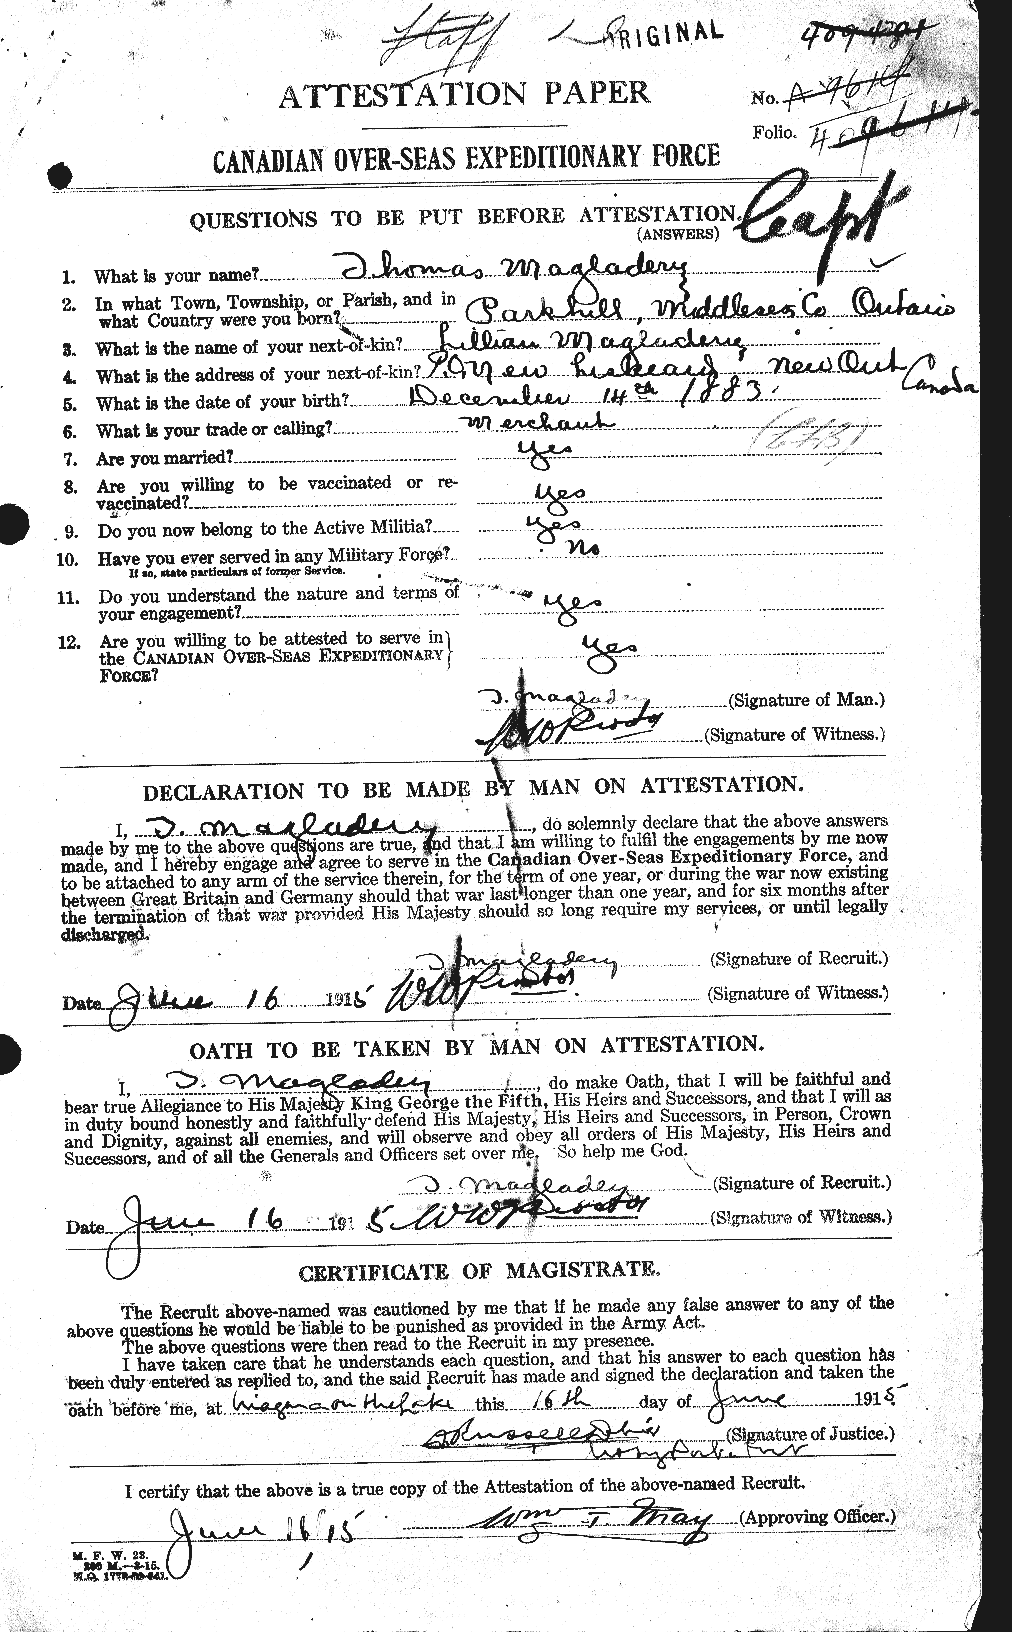 Staff ORIGINAL 409481
ATTESTATION PAPER
No. A 9614
Folio. 409614
CANADIAN OVER-SEAS EXPEDITIONARY FORCE
QUESTIONS TO BE PUT BEFORE ATTESTATION.
(ANSWERS)
Capt
1. What is your name? Thomas Magladery
2. In what Town, Township, or Parish, and in
what Country were you born? Parkhill, Middlesex Co Ontario
3. What is the name of your next-of-kin? Lillian Magladery
4. What is the address of your next-of-kin? P.O. New Liskeard, New Ont Canada
5. What is the date of your birth? December 14th 1883.
6. What is your trade or calling? Merchant
7. Are you married? Yes
8. Are you willing to be vaccinated or re-
vaccinated? Yes
9. Do you now belong to the Active Militia? Yes
10. Have you ever served in any Military Force? No
If so, state particulars of former Service.
11. Do you understand the nature and terms of
your engagement? Yes
12. Are you willing to be attested to serve in
the CANADIAN OVER-SEAS EXPEDITIONARY
FORCE? Yes
T. Magladery (Signature of Man.)
(Signature of Witness.)
DECLARATION TO BE MADE BY MAN ON ATTESTATION.
I, T. Magladery, do solemnly declare that the above answers
made by me to the above questions are true, and that I am willing to fulfil the engagements by me now
made, and I hereby engage and agree to serve in the Canadian Over-Seas Expeditionary Force, and
to be attached to any arm of the service therein, for the term of one year, or during the war now existing
between Great Britain and Germany should that war last longer than one year, and for six months after
the termination of that war provided His Majesty should so long require my services, or until legally
discharged.
T. Magladery (Signature of Recruit.)
Date June 16 1915 (Signature of Witness.)
OATH TO BE TAKEN BY MAN ON ATTESTATION.
I, T. Magladery, do make Oath, that I will be faithful and
bear true Allegiance to His Majesty King George the Fifth, His Heirs and Successors, and that I will as
in duty bound honestly and faithfully defend His Majesty, His Heirs and Successors, in Person, Crown
and Dignity, against all enemies, and will observe and obey all orders of His Majesty, His Heirs and
Successors, and of all the Generals and Officers set over me. So help me God.
T. Magladery (Signature of Recruit.)
Date June 16 1915 (Signature of Witness.)
CERTIFICATE OF MAGISTRATE.
The Recruit above-named was cautioned by me that if he made any false answer to any of the
above questions he would be liable to be punished as provided in the Army Act.
The above questions were then read to the Recruit in my presence.
I have taken care that he understands each question, and that his answer to each question has
been duly entered as replied to, and the said Recruit has made and signed the declaration and taken the
oath before me, at Niagara on the Lake this 16th day of June 1915
(Signature of Justice.)
I certify that the above is a true copy of the Attestation of the above-named Recruit.
June 16/15 Wm T May (Approving Officer.)
M. F. W. 23.
200 M.—2-15.